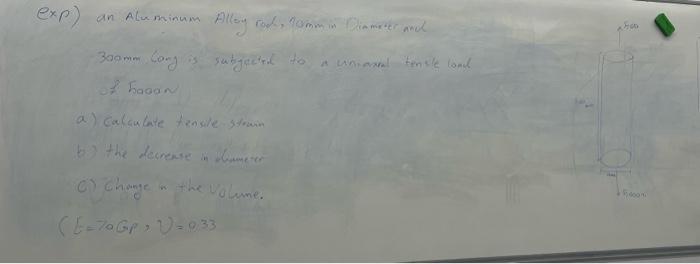 exp) an Aluminum Alloy rod, 10mm in Diameter and
300mm Long is subjected to a uniaxial tensile load
of 5000N
a) Calculate tensile strain
b) the decrease in diameter
c) Change in the Volume.
(E=70Gp, ν=0.33
5000N